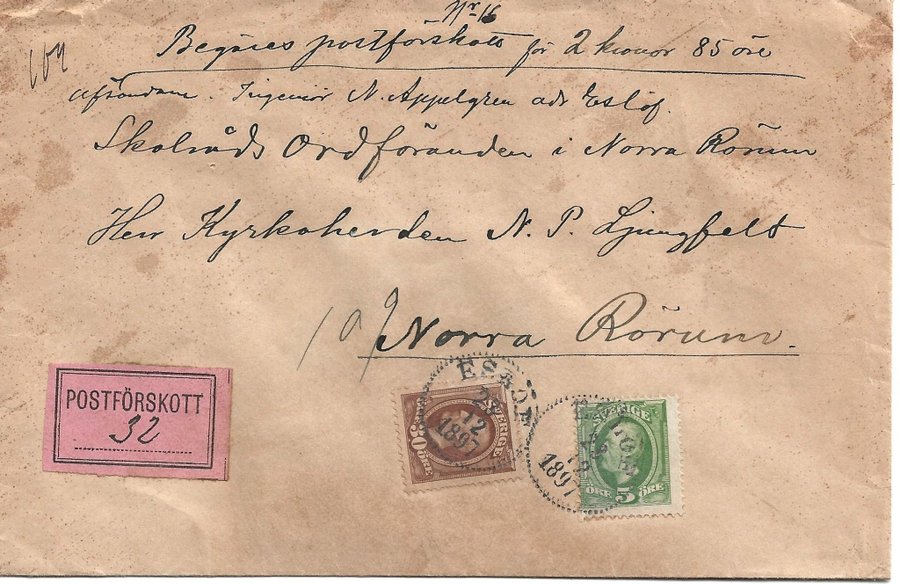 Nr 16
Begäres postförskott för 2 kronor 85 öre
104
Afsändare. Ingeniör N. Appelgren adr Eslöf.
Skolråds Ordföranden i Norra Rörum
Herr Kyrkoherden N. P. Ljungfelt
Norra Rörum.
POSTFÖRSKOTT
32
ESLÖF
12
1897
SVERIGE
30 ÖRE
ESLÖF
1897
SVERIGE
ÖRE 5 ÖRE